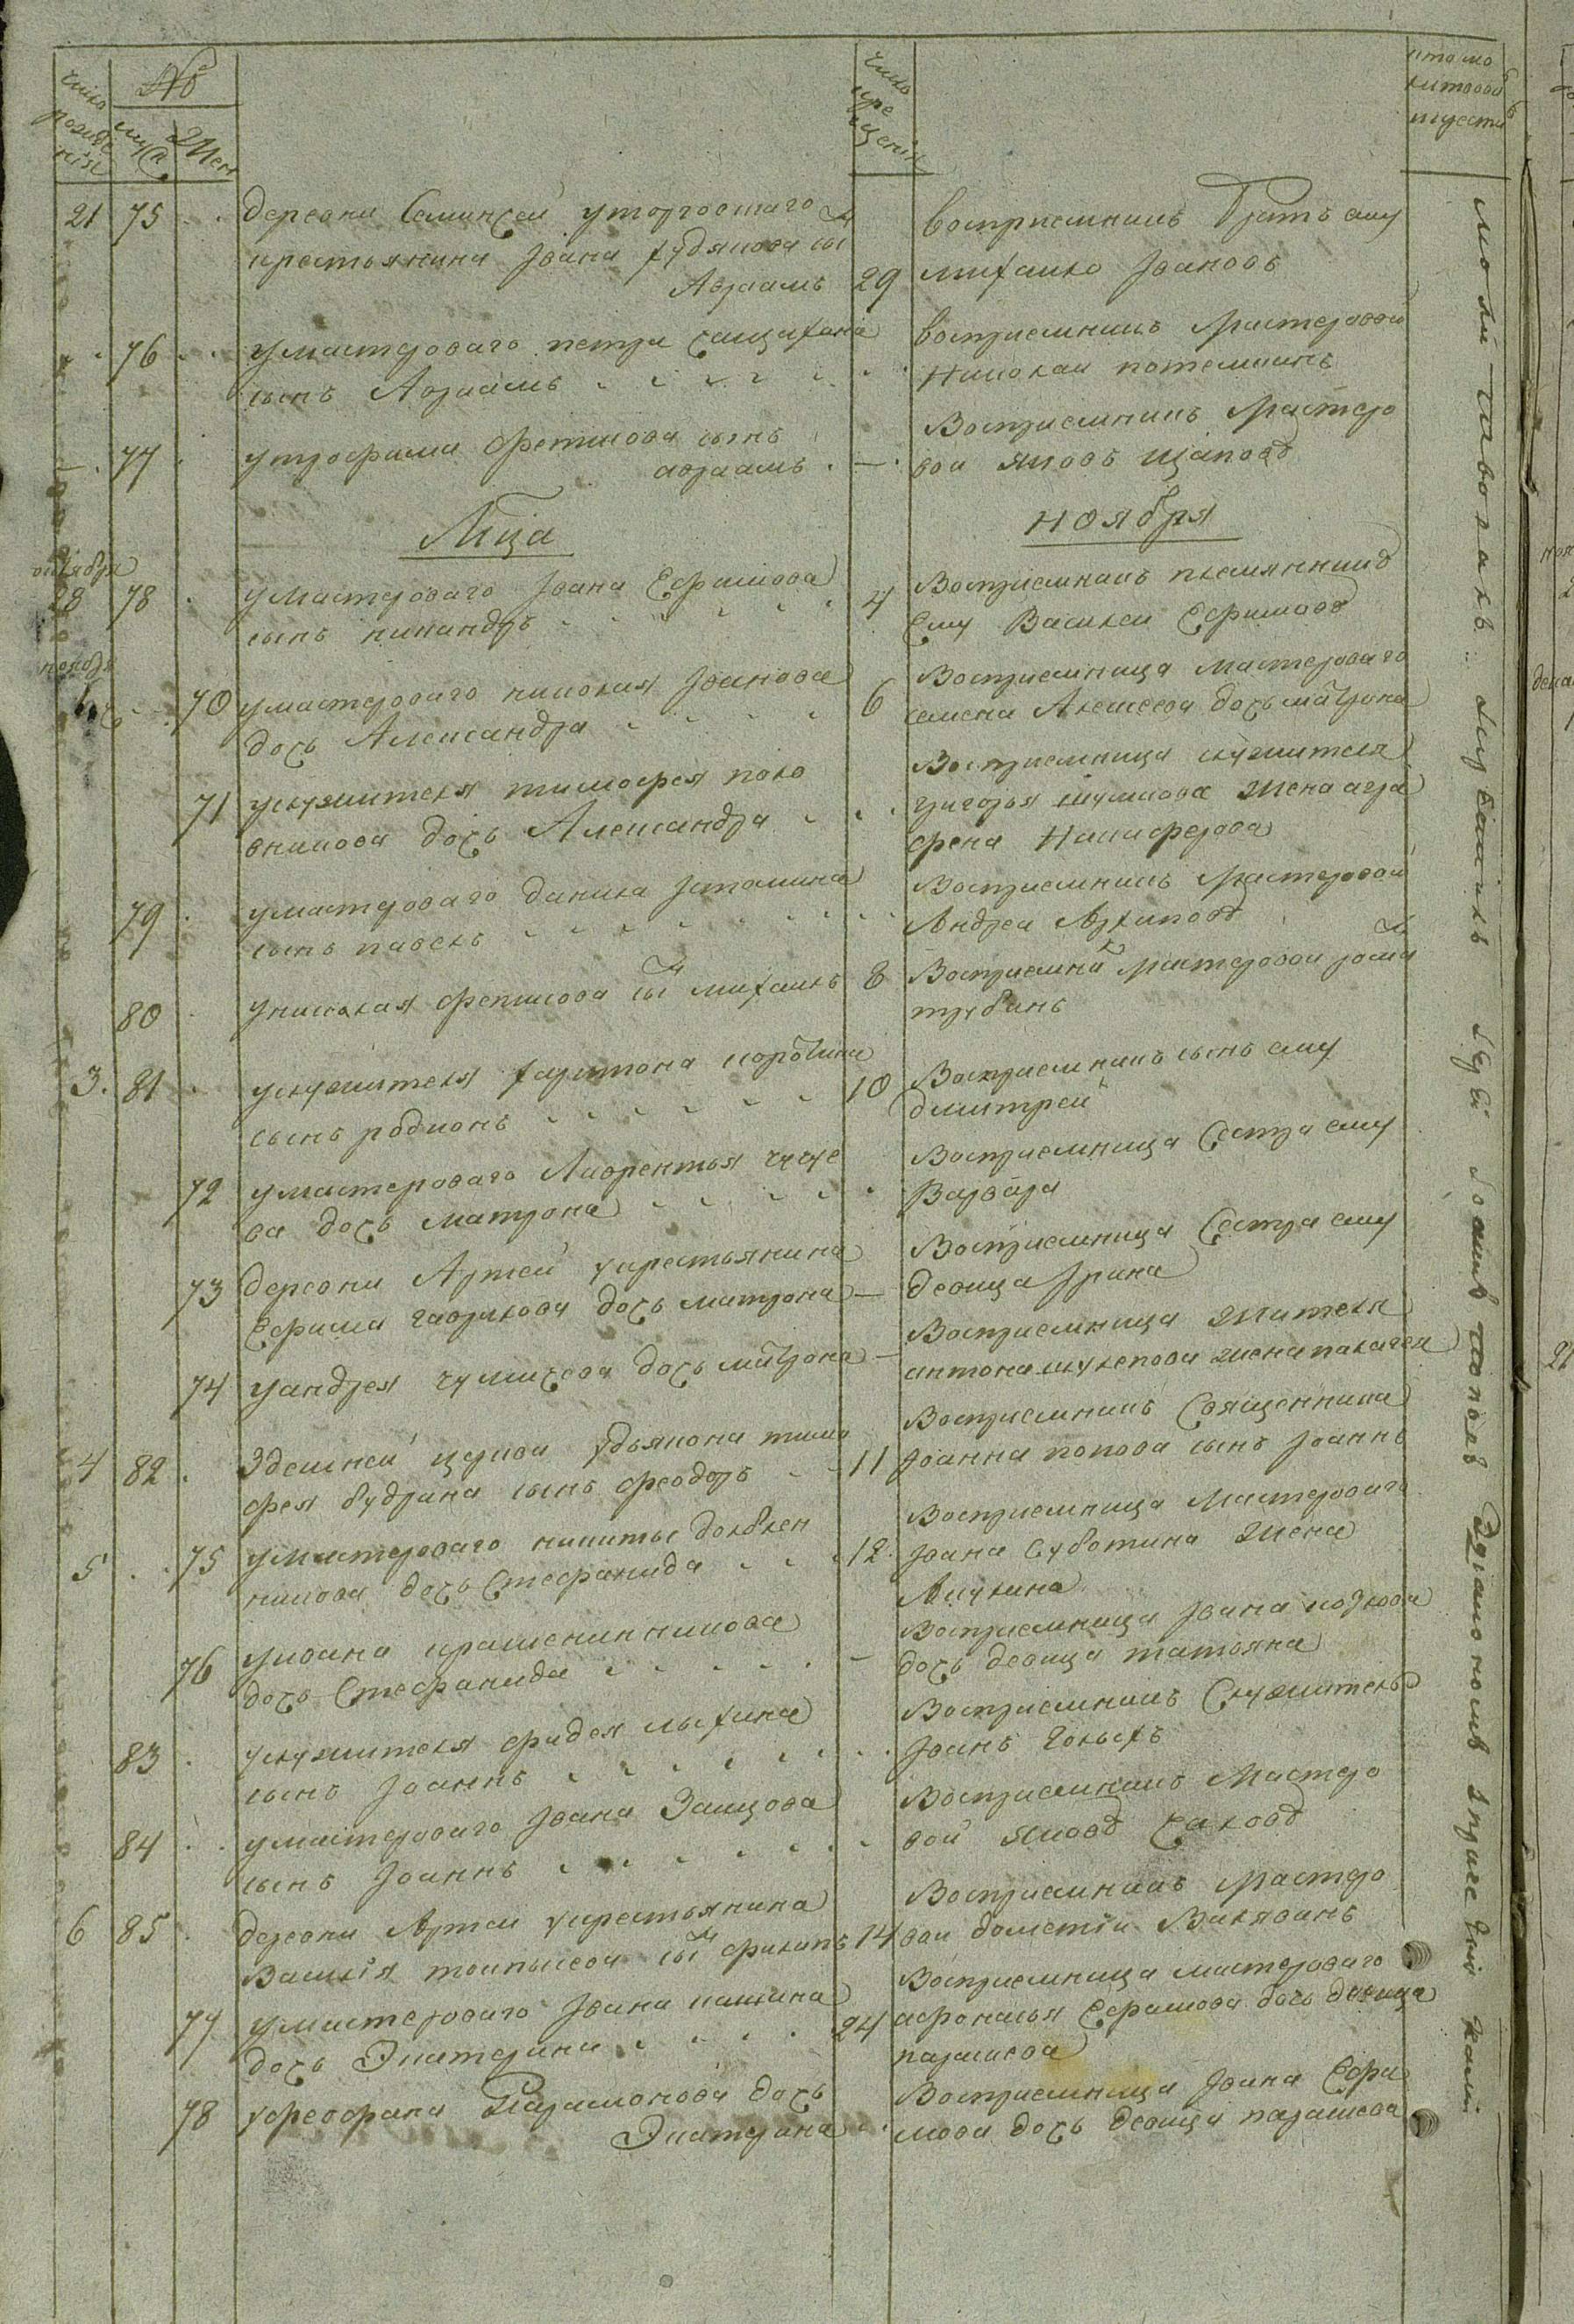 число рожденія
№
муж
жен
число крещенія
кто мо литвовал
21 75 деревни Семинской у торговшаго
крестьянина Iвана худякова сы
Авраамъ 29
восприемникъ братъ ему
михаило Iвановъ
76 у мастероваго петра
сынъ Авраамъ
восприемникъ мастеровой
Николаи потемкинъ
77 у трофима фетисова сынъ
авраамъ
Восприемникъ мастеро
вои яковъ щаповъ
Мца ноября
октября
28 78 у мастероваго Iвана Ефимова
сынъ никандръ 4
Восприемникъ племянникъ
Ему Василеи Ефимовъ
ноября
1 70 у мастероваго николая Iванова
дочь Александра 6
Восприемница мастероваго
семена Алексеева дочь матрона
71 у служителя тимофея поло
вникова дочь Александра
Восприемница служителя
григорья шумкова жена агра
фена Никифорова
79 у мастероваго данила Iстомина
сынъ павелъ
Восприемникъ мастеровой
Андреи Архиповъ
80 у николая фетисова сы михаилъ 8
Восприемникъ мастеровои рома
трубинъ
3 81 у служителя харитона коробкина
сынъ родионъ 10
Восприемникъ сынъ ему
дмитреи
72 у мастероваго Лаврентья чуче
ва дочь матрона
Восприемница Сестра ему
Варвара
73 деревни Артеи у крестьянина
Ефима гаврилова дочь матрона
Восприемница Сестра ему
девица Iрина
74 у андрея чумичева дочь матрона
Восприемница жителя
антона шулепова жена палагея
4 82 Здешней церкви у дьякона тимо
фея будрина сынъ феодоръ 11
Восприемникъ Священника
Iоанна попова сынъ Iоаннъ
5 75 у мастероваго никиты долблен
никова дочь Стефанида 12
Восприемница мастероваго
Iвана Суботина жена
Акулина
76 у ивана крашенинникова
дочь Стефанида
Восприемница Iвана козлова
дочь девица татьяна
83 у служителя фадея лыхина
сынъ Iоаннъ
Восприемникъ Служитель
Iванъ Голыхъ
84 у мастероваго Iвана Заицова
сынъ Iоаннъ
Восприемникъ мастеро
вой яковъ
6 85 деревни Артеи у крестьянина
Василья сы филипъ 14
Восприемникъ мастеро
вои дометiи
77 у мастероваго Iвана пашина
дочь Экатерина 24
Восприемница мастероваго
афонасья Ефимова дочь девица
парасковa
78 у феофана Парамонова дочь
Экатерина
Восприемница Iвана Ефи
мова дочь девица парасковa